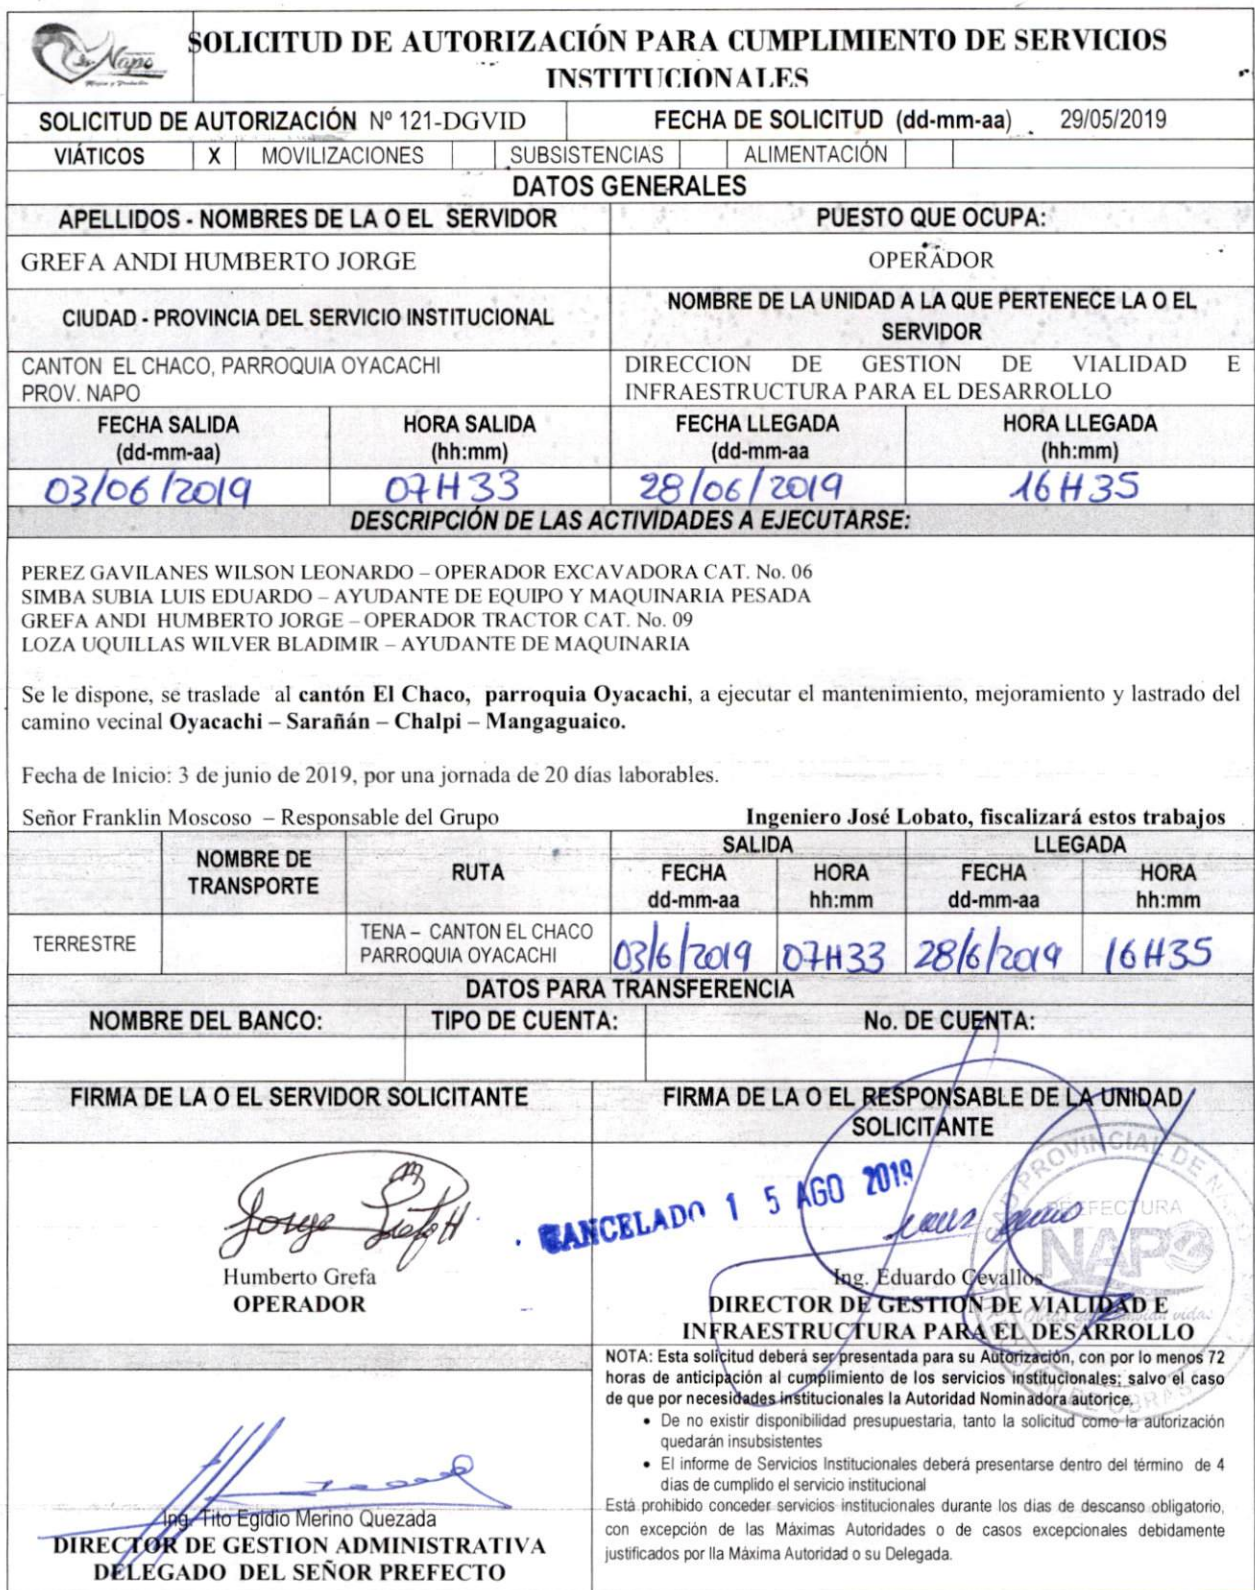 Napo
SOLICITUD DE AUTORIZACIÓN PARA CUMPLIMIENTO DE SERVICIOS
INSTITUCIONALES
SOLICITUD DE AUTORIZACIÓN Nº 121-DGVID FECHA DE SOLICITUD (dd-mm-aa) 29/05/2019
VIÁTICOS X MOVILIZACIONES SUBSISTENCIAS ALIMENTACIÓN
DATOS GENERALES
APELLIDOS - NOMBRES DE LA O EL SERVIDOR PUESTO QUE OCUPA:
GREFA ANDI HUMBERTO JORGE OPERADOR
CIUDAD - PROVINCIA DEL SERVICIO INSTITUCIONAL NOMBRE DE LA UNIDAD A LA QUE PERTENECE LA O EL
SERVIDOR
CANTON EL CHACO, PARROQUIA OYACACHI DIRECCION DE GESTION DE VIALIDAD E
PROV. NAPO INFRAESTRUCTURA PARA EL DESARROLLO
FECHA SALIDA HORA SALIDA FECHA LLEGADA HORA LLEGADA
(dd-mm-aa) (hh:mm) (dd-mm-aa (hh:mm)
03/06/2019 07H33 28/06/2019 16H35
DESCRIPCIÓN DE LAS ACTIVIDADES A EJECUTARSE:
PEREZ GAVILANES WILSON LEONARDO – OPERADOR EXCAVADORA CAT. No. 06
SIMBA SUBIA LUIS EDUARDO – AYUDANTE DE EQUIPO Y MAQUINARIA PESADA
GREFA ANDI HUMBERTO JORGE – OPERADOR TRACTOR CAT. No. 09
LOZA UQUILLAS WILVER BLADIMIR – AYUDANTE DE MAQUINARIA
Se le dispone, se traslade al cantón El Chaco, parroquia Oyacachi, a ejecutar el mantenimiento, mejoramiento y lastrado del
camino vecinal Oyacachi – Sarañán – Chalpi – Mangaguaico.
Fecha de Inicio: 3 de junio de 2019, por una jornada de 20 días laborables.
Señor Franklin Moscoso – Responsable del Grupo Ingeniero José Lobato, fiscalizará estos trabajos
SALIDA LLEGADA
NOMBRE DE TRANSPORTE RUTA FECHA HORA FECHA HORA
dd-mm-aa hh:mm dd-mm-aa hh:mm
TERRESTRE TENA – CANTON EL CHACO PARROQUIA OYACACHI 03/6/2019 07H33 28/6/2019 16H35
DATOS PARA TRANSFERENCIA
NOMBRE DEL BANCO: TIPO DE CUENTA: No. DE CUENTA:
FIRMA DE LA O EL SERVIDOR SOLICITANTE FIRMA DE LA O EL RESPONSABLE DE LA UNIDAD
SOLICITANTE
CANCELADO 1 5 AGO 2019
Jorge Grefa H
PREFECTURA
NAPO
Humberto Grefa
OPERADOR
Ing. Eduardo Cevallos
DIRECTOR DE GESTION DE VIALIDAD E
INFRAESTRUCTURA PARA EL DESARROLLO
NOTA: Esta solicitud deberá ser presentada para su Autorización, con por lo menos 72
horas de anticipación al cumplimiento de los servicios institucionales; salvo el caso
de que por necesidades institucionales la Autoridad Nominadora autorice.
• De no existir disponibilidad presupuestaria, tanto la solicitud como la autorización
quedarán insubsistentes
• El informe de Servicios Institucionales deberá presentarse dentro del término de 4
días de cumplido el servicio institucional
Está prohibido conceder servicios institucionales durante los días de descanso obligatorio,
con excepción de las Máximas Autoridades o de casos excepcionales debidamente
justificados por lla Máxima Autoridad o su Delegada.
Ing. Tito Egidio Merino Quezada
DIRECTOR DE GESTION ADMINISTRATIVA
DELEGADO DEL SEÑOR PREFECTO